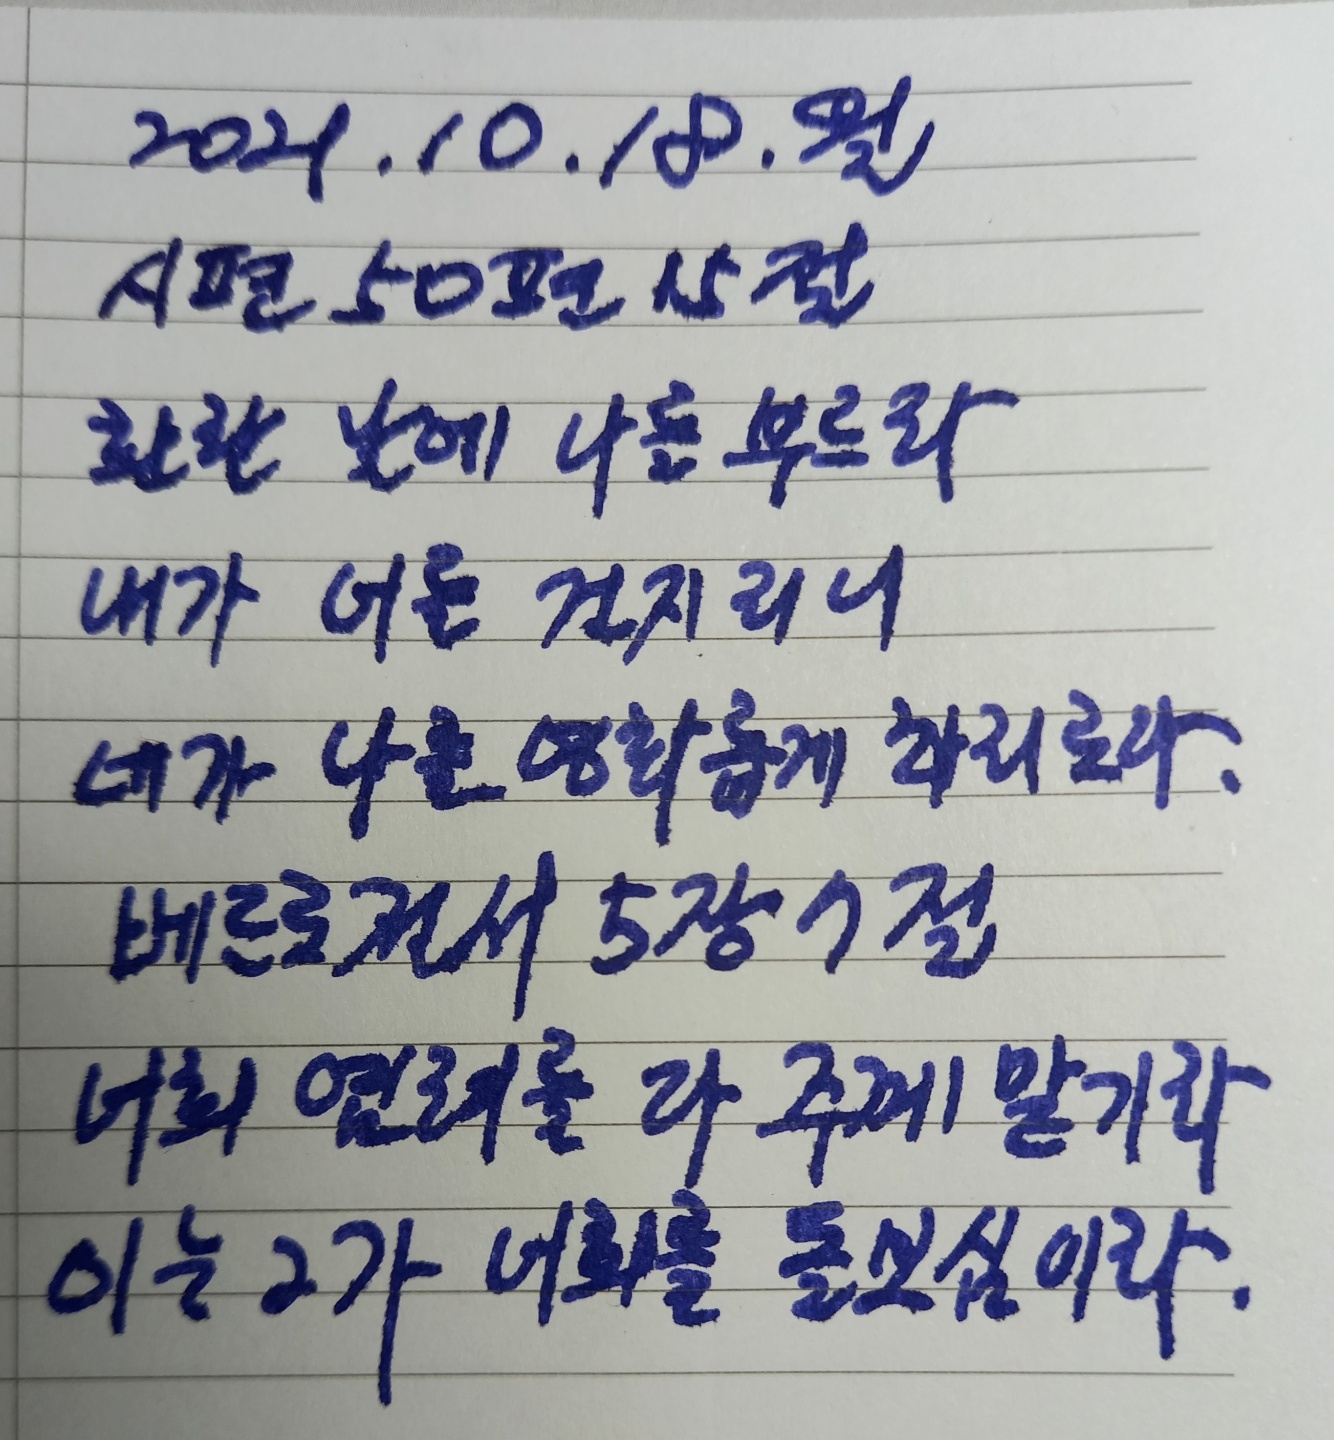 2021.10.18.월
시편 50편 15절
환란 날에 나를 부르라
내가 너를 건지리니
네가 나를 영화롭게 하리로다.
베드로전서 5장 7절
너희 염려를 다 주께 맡기라
이는 그가 너희를 돌보심이라.